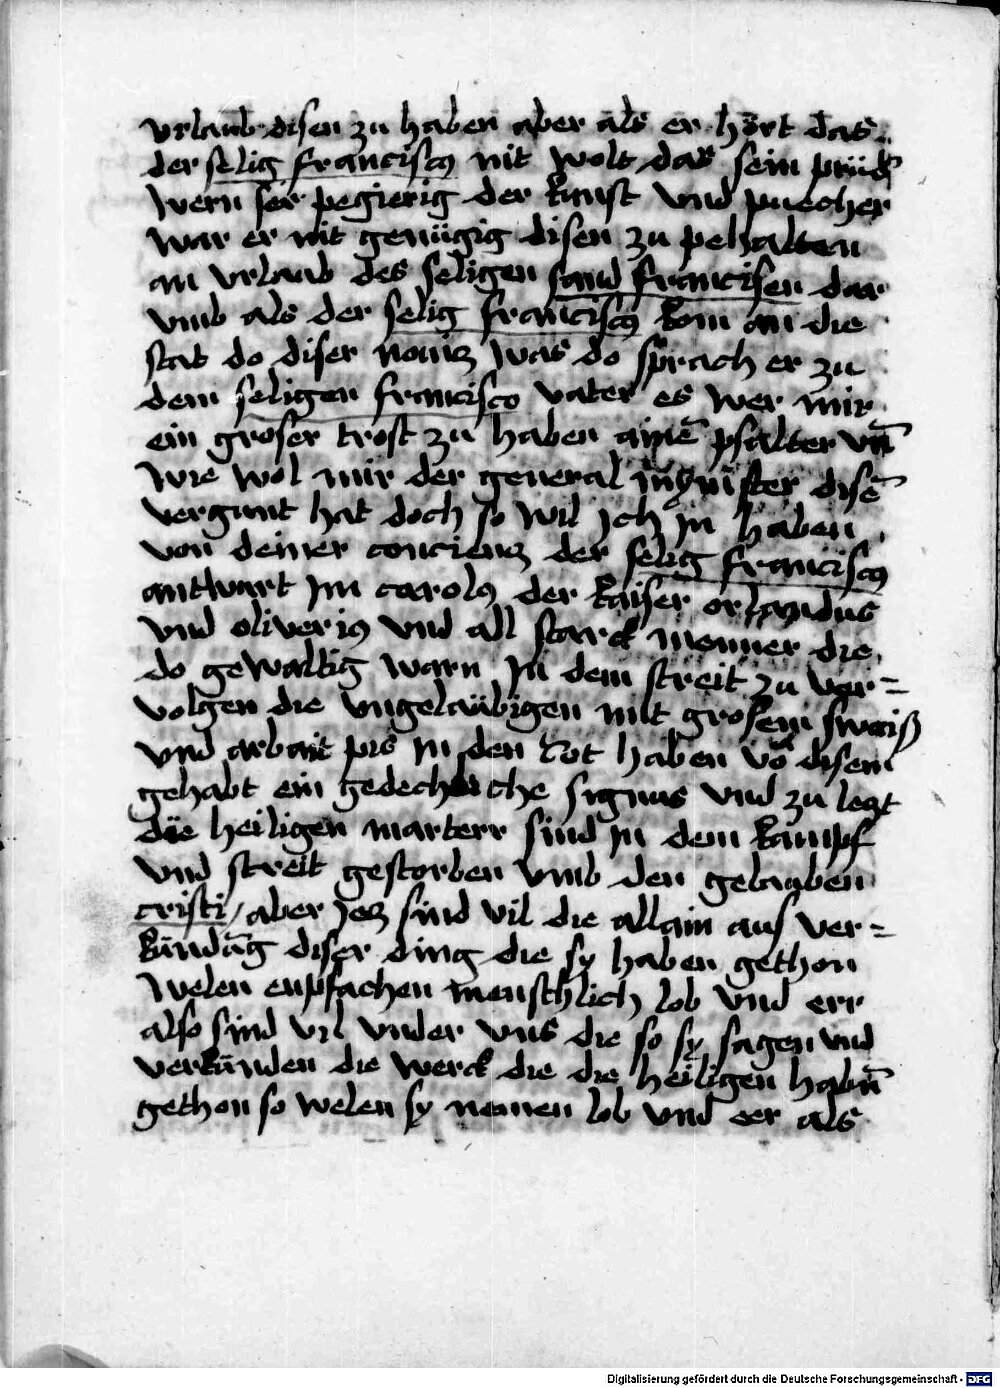 vrlaub disen zu haben aber als er hört das
der selig francisco nit wolt das sein prüd
wern ser pegierig der kunst vnd puecher
war er nit genügig disen zu pehalten
an vrlaub des seligen sand francisen dar
vmb als der selig francisco kom an die
stat do diser nouiz was do sprach er zu
dem seligen francisco vater es wer mir
ein groser trost zu haben ainē psalter vn̄
wie wol mir der general minister disē
vergunt hat doch so wil ich in haben
von deiner concienz der selig francisco
antwart im carolus der kaiser orlandus
vnd oliverius vnd all starck menner die
do gewaltig warn in dem streit zu ver=
volgen die vngelaübigen mit grosem swaiß
vnd arbait pis in den tot haben vō disem
gehabt ein signus vnd zu legt
die heiligen marterr sind in dem kampf
vnd streit gestorben vmb den gelauben
cristi / aber iez sind vil die allain auf ver=
kündūg diser ding die sy haben gethon
welen enpfachen menschlich lob vnd err
also sind vil vnder vns die so sy sagen vnd
verkünden die werck die die heiligen habn̄
gethon so welen sy nemen lob vnd eer als
Digitalisierung gefördert durch die Deutsche Forschungsgemeinschaft - DFG